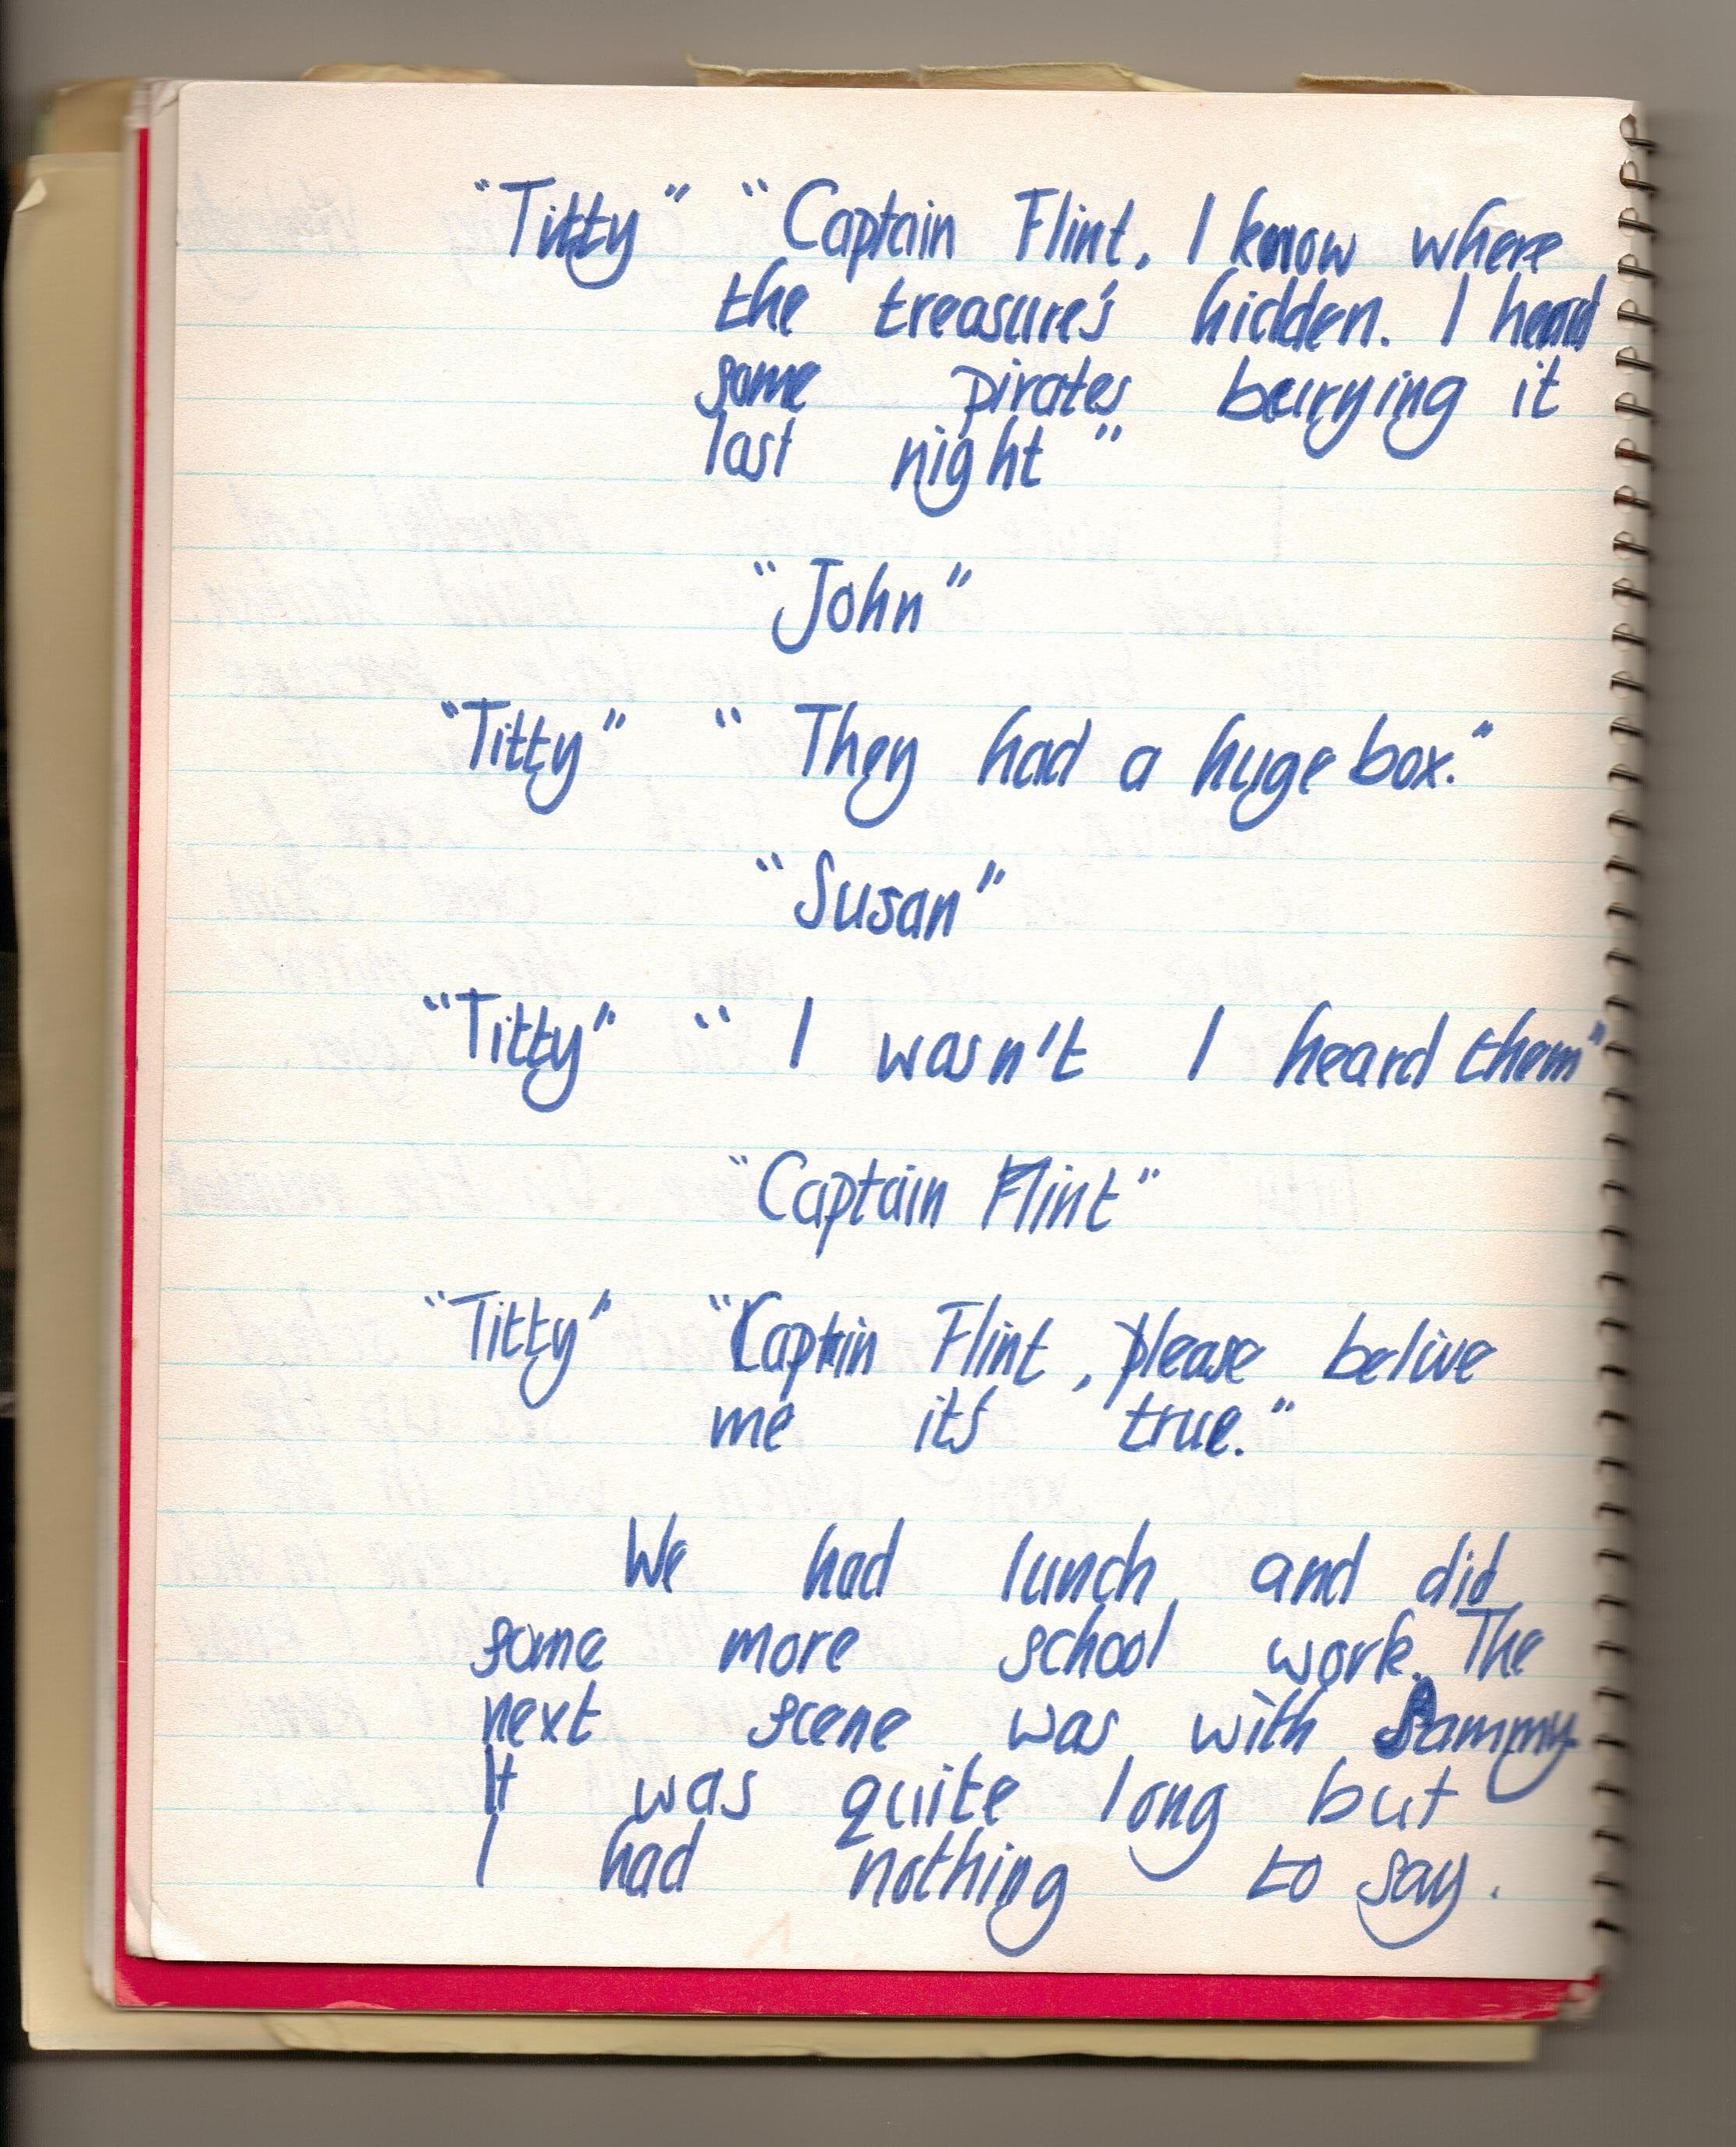 "Titty" "Captain Flint, I know where
the treasure's hidden. I heard
some pirates burying it
last night"
"John"
"Titty" "They had a huge box."
"Susan"
"Titty" "I wasn't I heard them"
"Captain Flint"
"Titty" "Captin Flint, please belive
me it's true."
We had lunch and did
some more school work. The
next scene was with Sammy
It was quite long but
I had nothing to say.